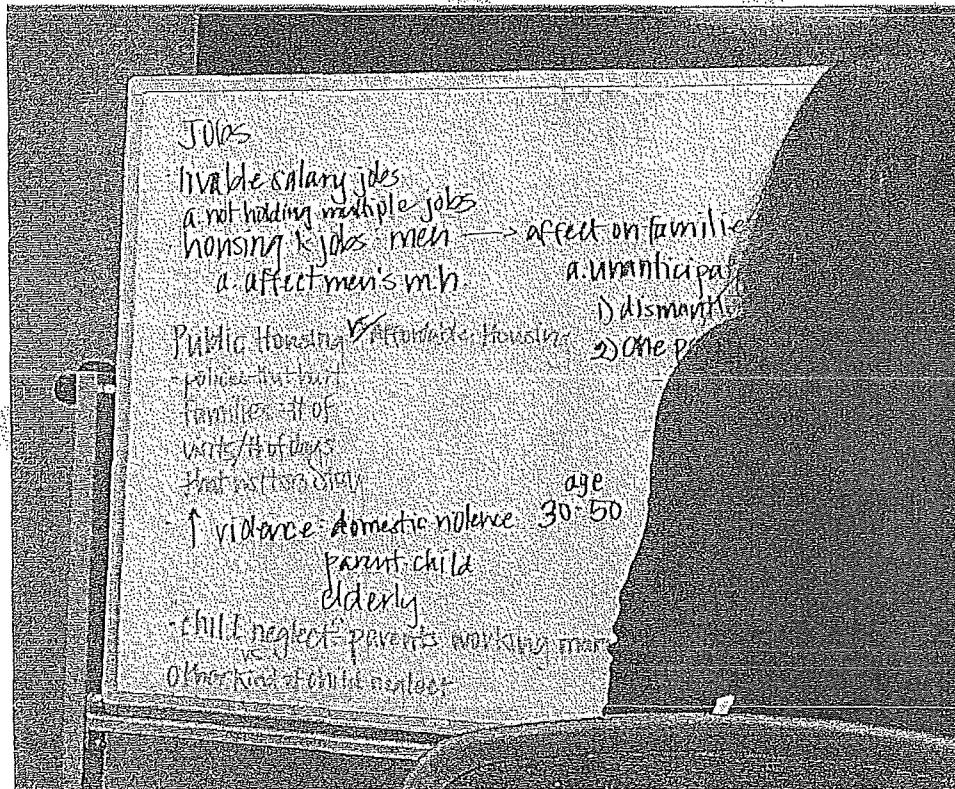 JObs
livable salary jobs
a. not holding multiple jobs
housing & jobs men → affect on familie
a. affect men's m.h.
a. unanticipat
1) dismantl
2) One p
Public Housing vs Affordable Housing
- police that hurt
families - # of
units/# of days
that visitors stay
- ↑ violence - domestic violence
parent-child
elderly
age
30-50
- child neglect - parents working mor
vs
other kind of child neglect